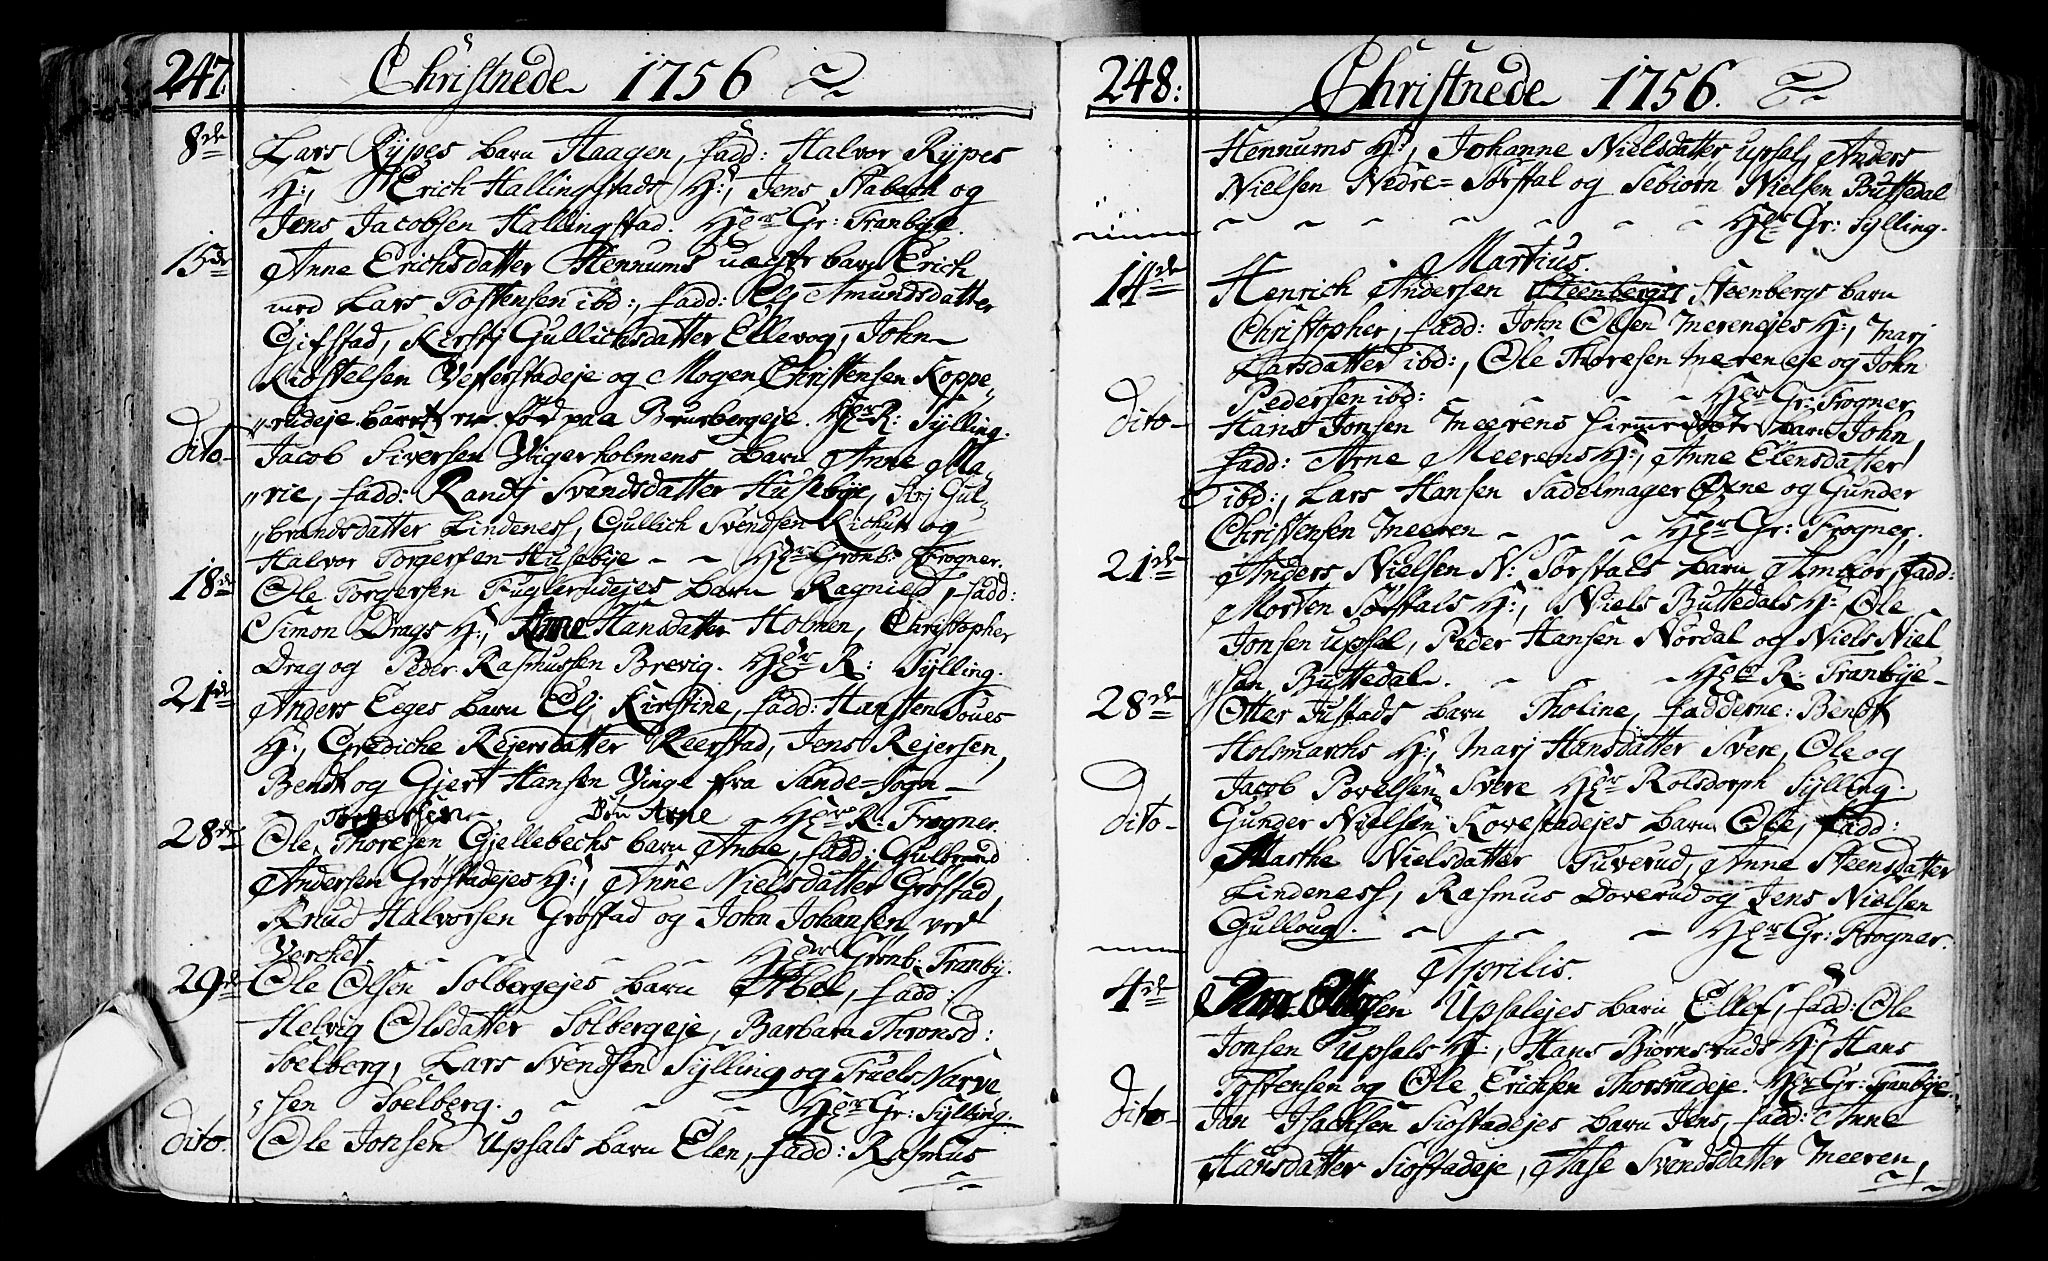 247: Christnede 1756
8de Lars Rypes barn Haagen, fadd: Halvor Rypes
H:, Erich Hallingstads H:, Jens Stabæch og
Jens Jacobsen Hallingstad. Hr Gr: Tranbÿe.
15de Anne Erichsdatter Hennums uægte barn Erich
med Lars Tostensen ibd:, fadd: Elj Amundsdatter
Gifstad, Kirstj Gullichsdatter Ellevog, John
Kiøstelsen Vefferstadeje og Mogen Christensen Koppe„
„rudeje. barnet er fød paa Bruusbergeje. Hr R: Sylling.
dito Jacob Siversen Vigerholmens barn Anne Ma„
„rie, fadd: Randj Svendsdatter Husebÿe, Sirj Gul„
„brandsdatter Lindeness, Gullich Svendsen Kichut og
Halvor Torgersen Husebÿe Hr Grønb: Frogner.
18de Ole Torgersen Fuglerudejes barn Ragnild, fadd:
Simon Drags H:, Anne Hansdatter Holmen, Christopher
Drag og Peder Rasmussen Brevig. Hr R: Sylling.
21de Anders Eeges barn Elj Kirstine, fadd: Hansten Soues
H:, Grediche Rejersdatter Reerstad, Jens Rejersen,
Bendt og Gjert Hansen Vinge fra Sande=Sogn
Torgersen Anne Hr R: Frogner.
28de Ole Thoresen Gjellebechs barn Anne, fadd: Gulbrand
Andersen Grøstadejes H:, Anne Nielsdatter Grøstad,
Knud Halvorsen Grøstad og John Johansen ved
Verchet. Hr Grønb: Tranbÿ.
29de Ole Olsen Solbergejes barn Abel, fadd:
Helvig Olsdatter Solbergeje, Barbara Thronsd:
Soelberg, Lars Svendsen Sylling og Truels Narve
sen Soelberg. Hr Gr: Sylling.
dito. Ole Jonsen Upsals barn Elen, fadd: Rasmus
248: Christnede 1756.
Hennums H:, Johanne Nielsdatter Upsal, Anders
Nielsen Nedre=Sørstal og Sebiørn Nielsen Buttedal
Hr Gr: Sylling.
Martius.
14de Henrich Andersen Steenbergs barn
Christopher, fadd: John Olsen Meerenejes H:, Marj
Larsdatter ibd:, Ole Thoresen Meereneje og John
Pedersen ibd: Hr Gr: Frogner
dito Hans Jonsen Meerens barn John,
fadd: Arne Meerens H:, Anne Elensdatter
ibd:, Lars Hansen Sadelmager Øxne og Gunder
Christensen Meeren Hr Gr: Frogner.
21de Anders Nielsen N: Sørstals barn Amkor, fadd:
Morten Sørstals H:, Niels Buttedals H: Ole
Jonsen Upsal, Peder Hansen Nordal og Niels Niel
„sen Buttedal. Hr R: Tranbÿe
28de Otter Justads barn Tholine, fadderne: Bendt
Holsmarchs H:, Marj Hansdatter Svere, Ole og
Jacob Povelsen Svere Hr Rolsdorph Sylling.
dito Gunder Nielsen Kovestadejes barn Ole, fadd:
Marthe Nielsdatter Tuverud, Anne Steensdatter
Lindeness, Rasmus Doverud og Jens Nielsen
Gulloug. Hr Gr: Frogner.
Aprilis.
4de Upsalejes barn Ellef, fadd: Ole
Jonsen Upsals H:, Hans Biørnsruds H:, Hans
Tostensen og Ole Erichsen Thorsrudeje. Hr Gr: Tranbÿe.
dito Jan Isachsen Siøstadejes barn Jens, fadd: Anne
Hansdatter Siøstadeje, Aase Svendsdatter Meeren,